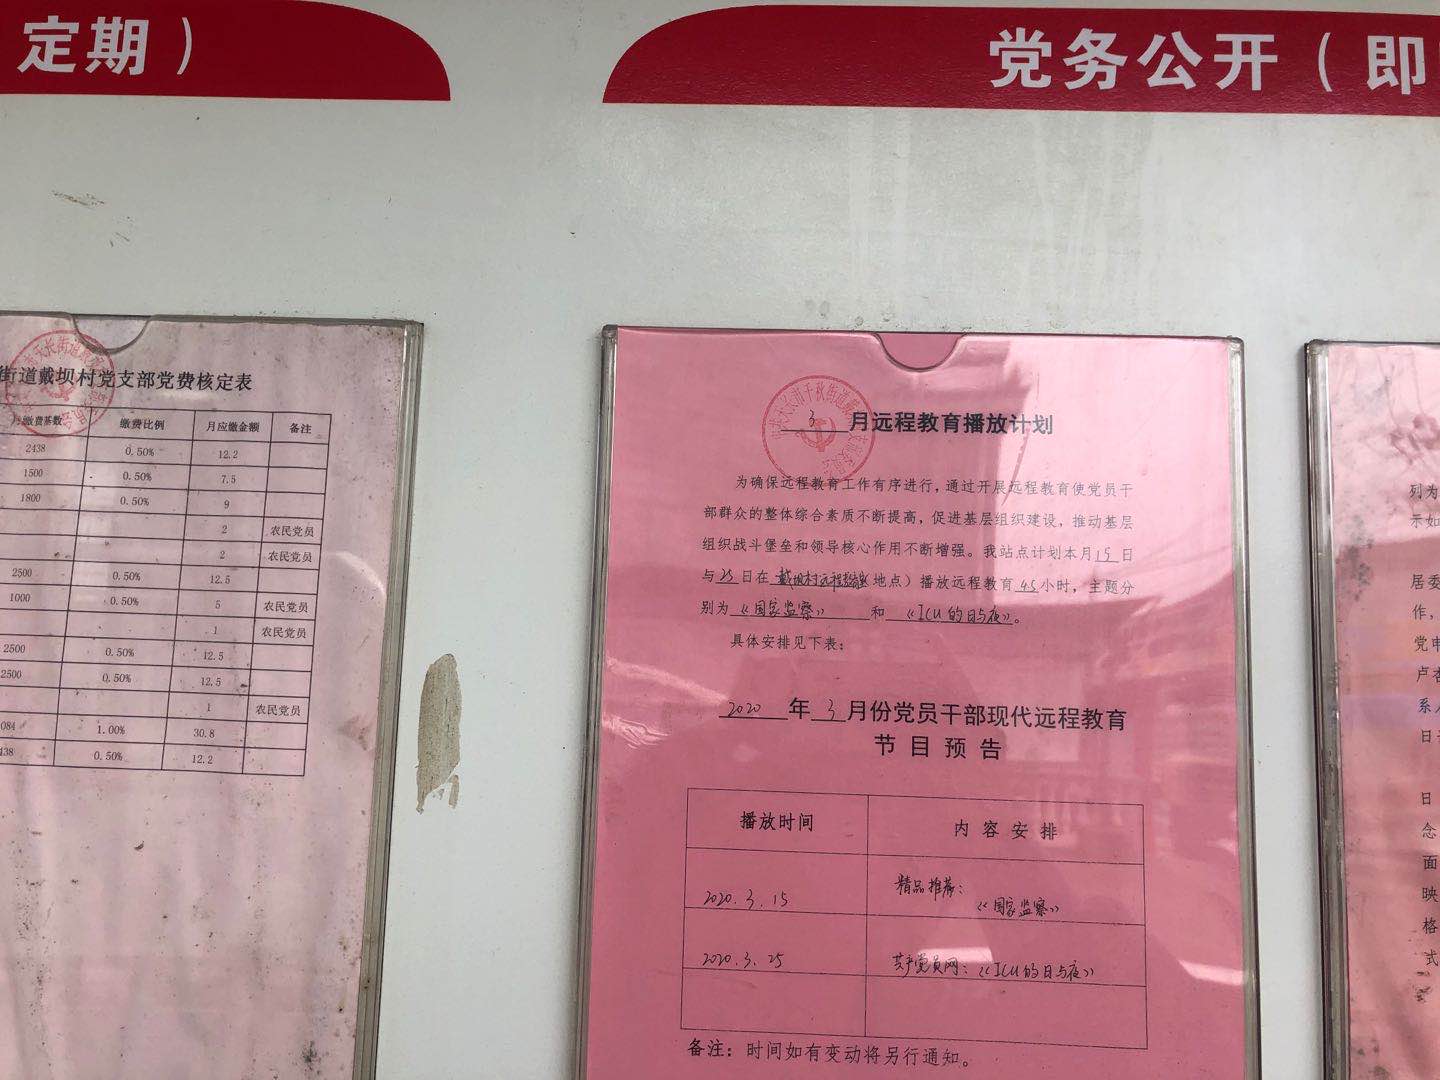 定期）
党务公开（即
街道戴坝村党支部党费核定表
月缴费基数 缴费比例 月应缴金额 备注
2438 0.50% 12.2
1500 0.50% 7.5
1800 0.50% 9
2 农民党员
2 农民党员
2500 0.50% 12.5
1000 0.50% 5 农民党员
1 农民党员
2500 0.50% 12.5
2500 0.50% 12.5
1 农民党员
084 1.00% 30.8
438 0.50% 12.2
3 月远程教育播放计划
为确保远程教育工作有序进行，通过开展远程教育使党员干
部群众的整体综合素质不断提高，促进基层组织建设，推动基层
组织战斗堡垒和领导核心作用不断增强。我站点计划本月15日
与25日在 戴坝村远程教室（地点）播放远程教育 45 小时，主题分
别为《国家监察》 和 《ICU的日与夜》。
具体安排见下表：
2020 年 3 月份党员干部现代远程教育
节目预告
播放时间 内容安排
2020.3.15 精品推荐：
《国家监察》
2020.3.25 共产党员网：《ICU的日与夜》
备注：时间如有变动将另行通知。
列为
示如
居委
作，
党申
系人
日
念
面
映
格
式